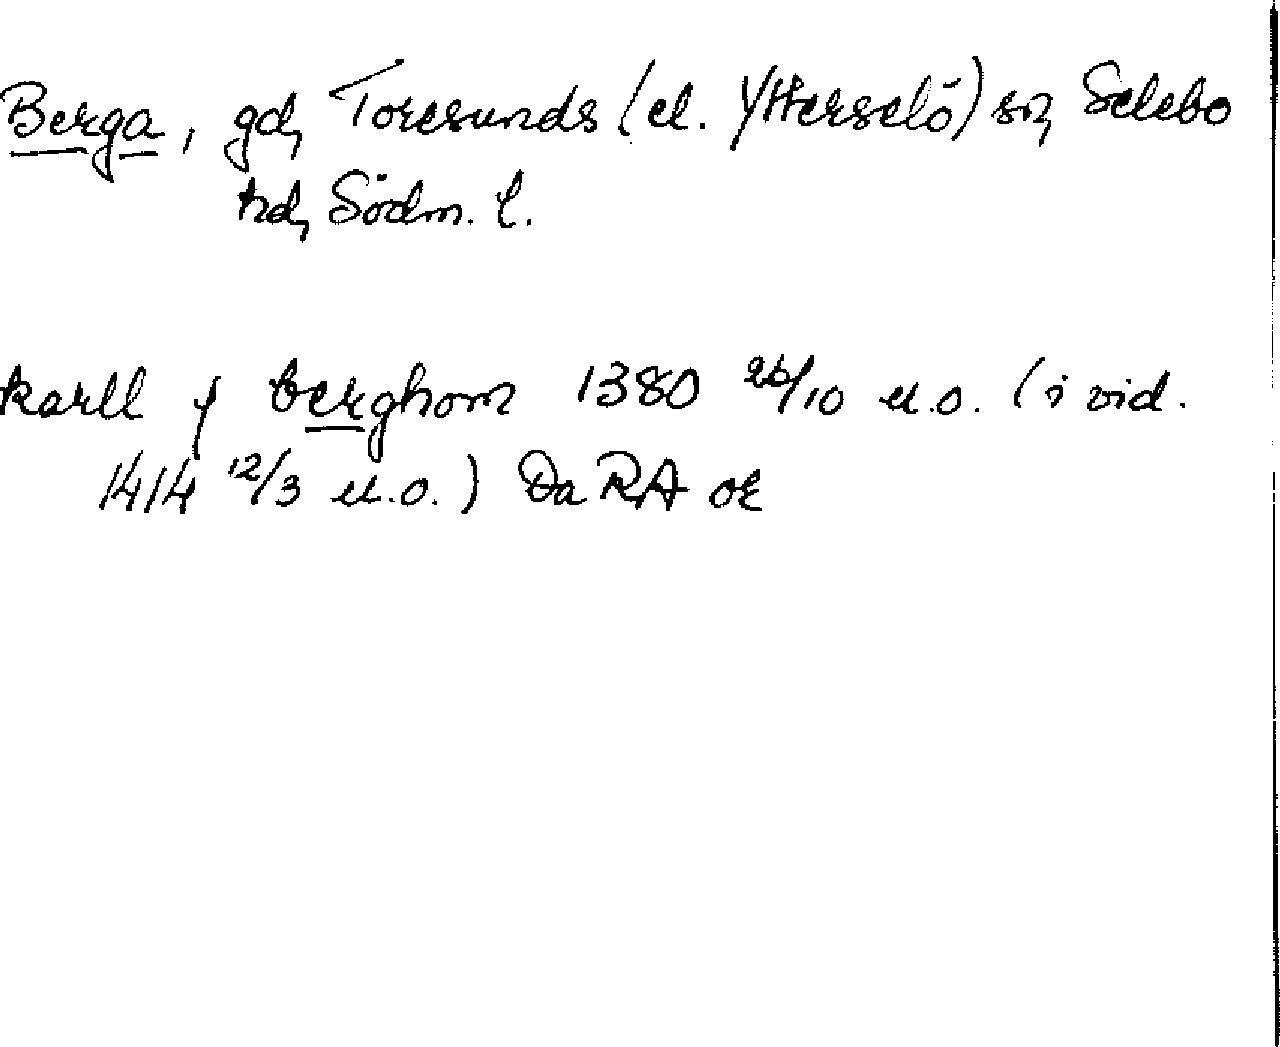 Berga, gd, Toresunds (el. Ytterselö) sn, Selebo
hd, Södm. l.
karll y berghom 1380 26/10 u.o. (i vid.
1414 12/3 u.o.) Da RA or